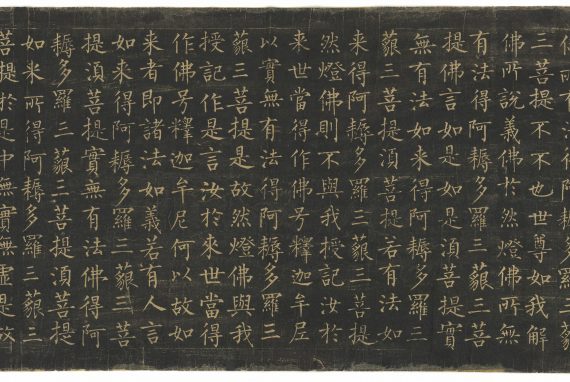 佛所有法得阿耨多羅三藐
三菩提不不也世尊如我解
佛所說義佛於然燈佛所無
有法得阿耨多羅三藐三菩
提佛言如是如是湏菩提實
無有法如来得阿耨多羅三
藐三菩提湏菩提若有法如
来得阿耨多羅三藐三菩提
然燈佛則不與我授記汝於
来世當得作佛号釋迦牟尼
以實無有法得阿耨多羅三
藐三菩提是故然燈佛與我
授記作是言汝於来世當得
作佛号釋迦牟尼何以故如
来者即諸法如義若有人言
如来得阿耨多羅三藐三菩
提湏菩提實無有法佛得阿
耨多羅三藐三菩提湏菩提
如来所得阿耨多羅三藐三
菩提於是中無實無虛是故